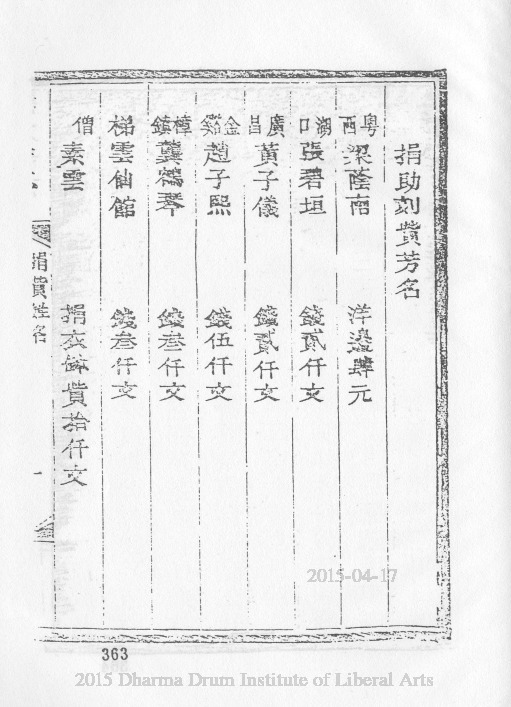 捐助刻貲芳名
粤西 梁蔭南 洋邊肆元
湖口 張碧垣 錢貳仟文
廣昌 黃子儀 錢貳仟文
金谿 趙子熙 錢伍仟文
樟鎮 龔鶴琴 錢叁仟文
梯雲仙館 錢叁仟文
僧 素雲 捐衣鉢貲拾仟文
捐貲姓名
一
2015-04-17
363
2015 Dharma Drum Institute of Liberal Arts